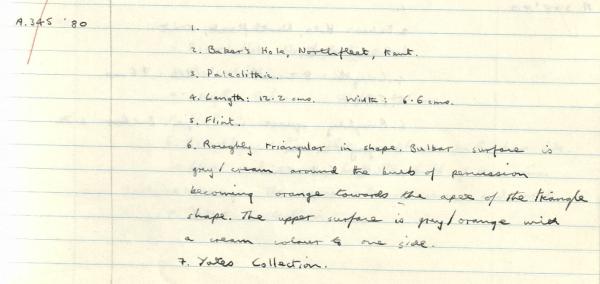 A.345 '80
1.
2. Baker's Hole, Northfleet, Kent.
3. Paleolithic.
4. Length: 12.2 cms. Width: 6.6 cms.
5. Flint.
6. Roughly triangular in shape. Bulbar surface is
grey/cream around the bulb of percussion
becoming orange towards the apex of the triangle
shape. The upper surface is grey/orange with
a cream colour to one side.
7. Yates Collection.